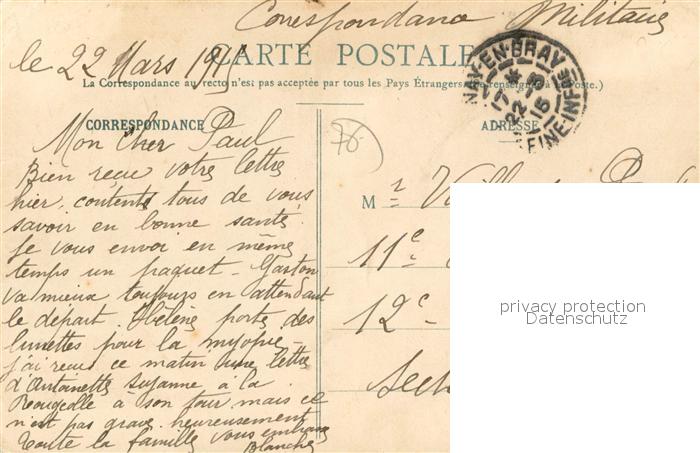 Correspondance Militaire
le 22 Mars 1915
CARTE POSTALE
La Correspondance au recto n'est pas acceptée par tous les Pays Étrangers. (Se renseigner à la Poste.)
CORRESPONDANCE
Mon Cher Paul
Bien reçu votre lettre
hier, contents tous de vous
savoir en bonne santé.
Je vous envoi en même
temps un paquet - Gaston
va mieux toujours en attendant
le départ. Hélène porte des
lunettes pour la myopie -
j'ai reçu ce matin une lettre
d'Antoinette Suzanne à la
Rougeolle à son tour mais ce
n'est pas grave. heureusement
Toute la famille vous embrasse
Blanche
70-
ADRESSE
EN-BRAY
17 * 22 -3 15
SEINE-INFRE
Mr
11e
12e -
Sect
privacy protection
Datenschutz